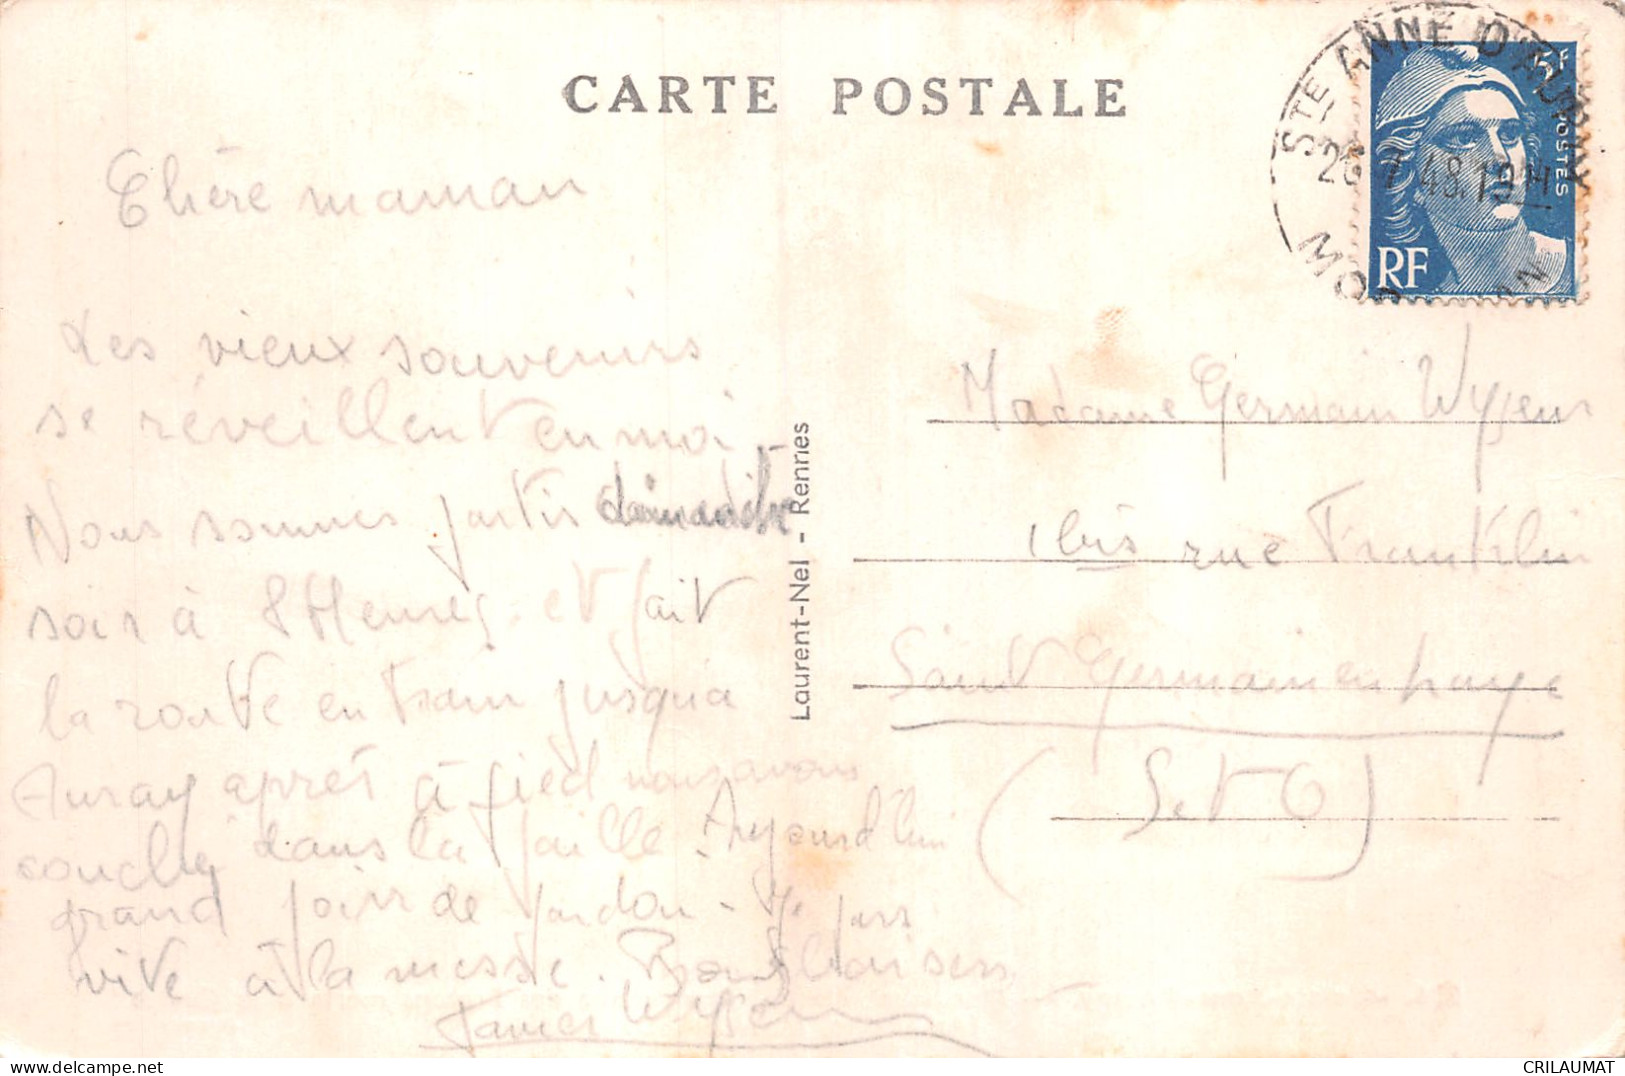 CARTE POSTALE
STE ANNE D'AURAY
26 7 48. 19 H
MORBIHAN
5F
POSTES
RF
Chère maman
Les vieux souvenirs
se réveillent en moi
Nous sommes partis dimanche
soir à 8 Heures et fait
la route en train jusqua
Auray après à pied nous avons
couché dans la paille. Aujourd'hui
grand jour de pardon - Je pars
vite à la messe. Bons baisers
Madame Germain
1 bis rue Franklin
Saint Germain en Laye
(S et O)
Laurent-Nel - Rennes
CRILAUMAT